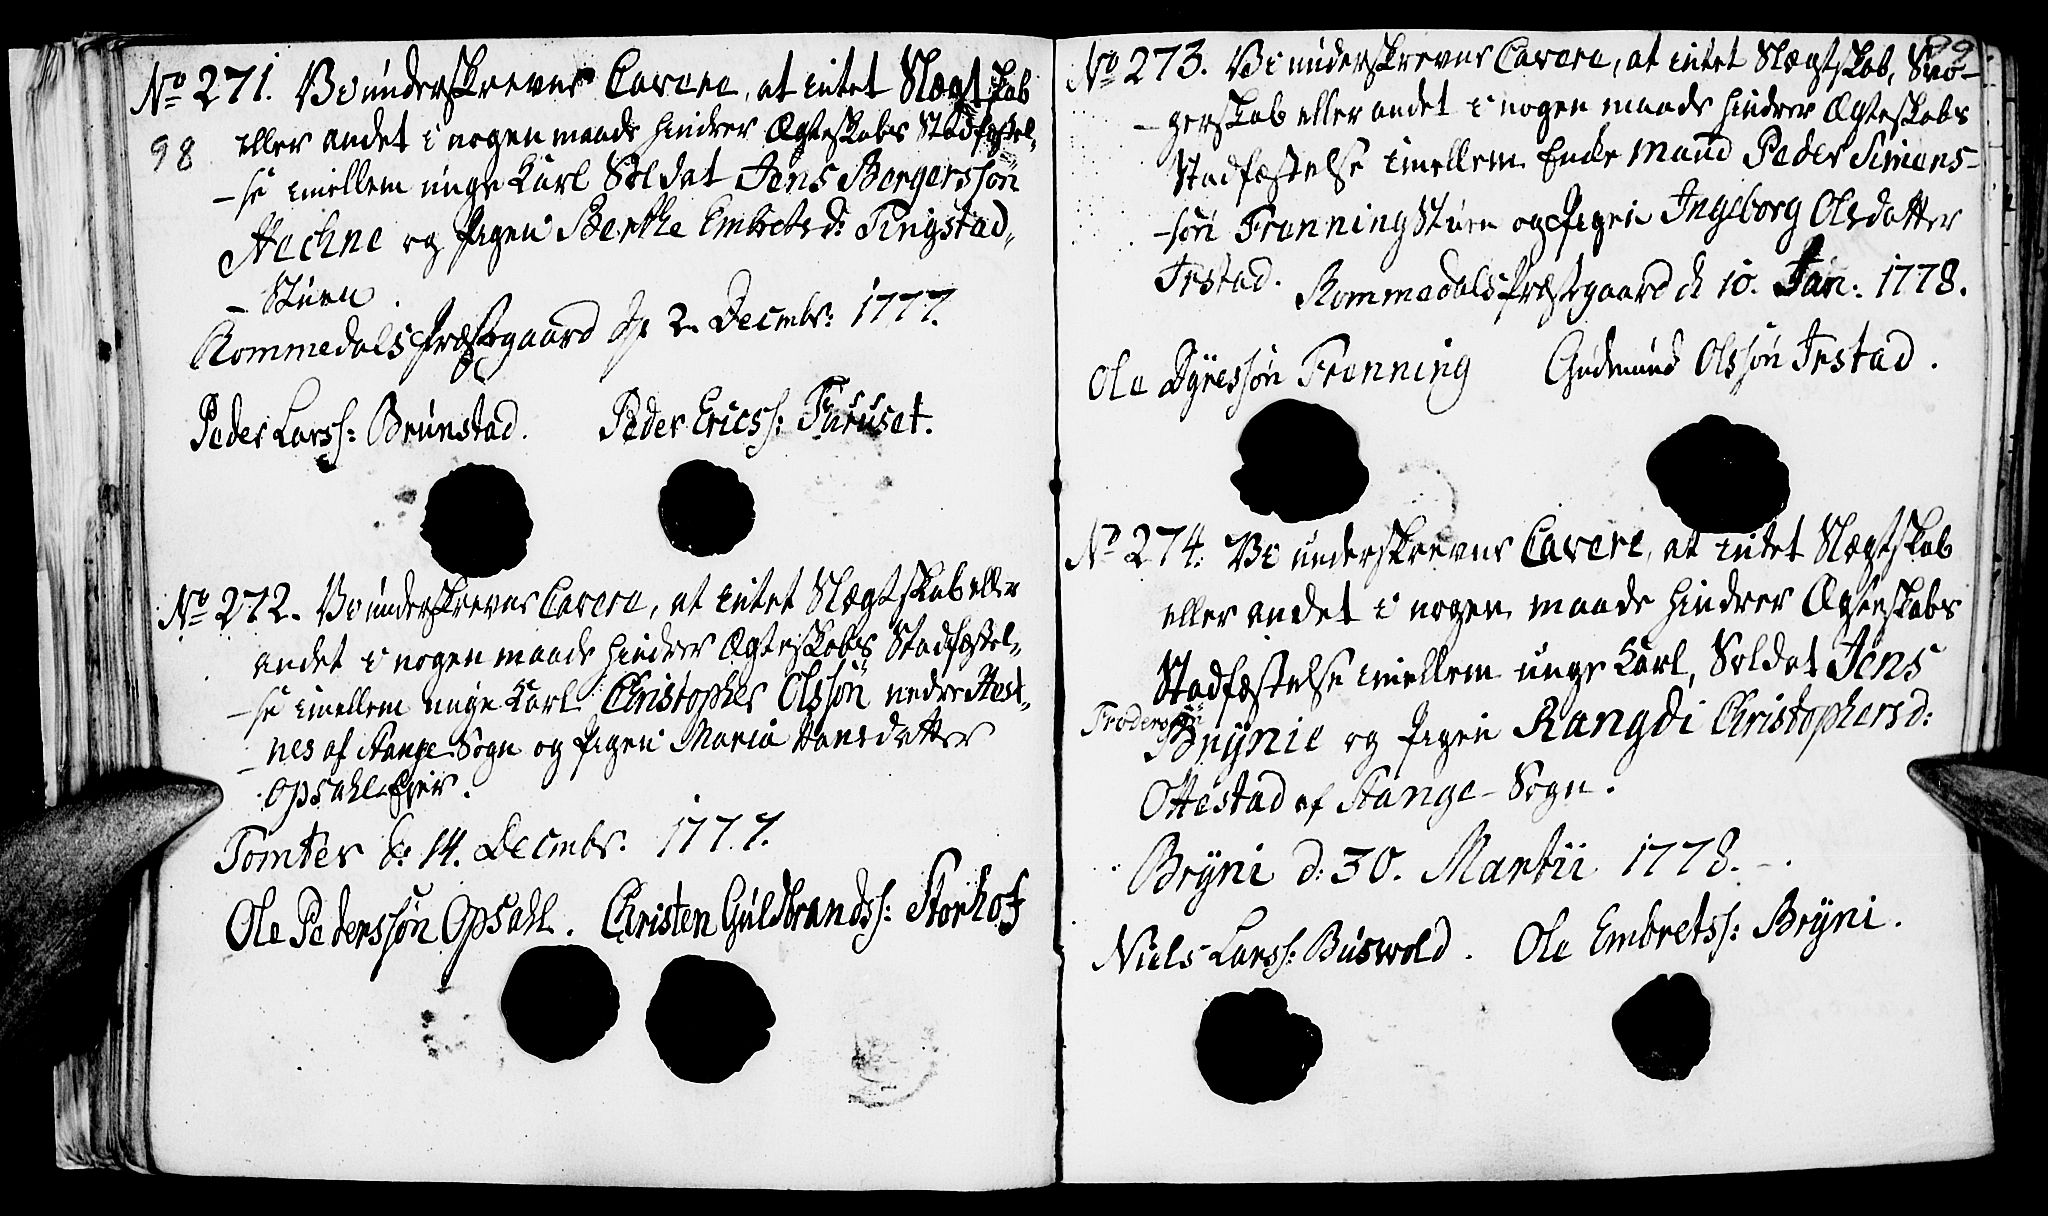 No 271. Vi underskrevne Cavere, at intet Slægtskab
98 eller andet i nogen maade hindrer Ægteskabs Stadfæstel-
-se imellem unge Karl Soldat Jens Borgerssøn
Hechne og Pigen Berthe Embretsd: Tingstad-
-Stuen.
Rommedals Præstegaard d. 2. Decmbr: 1777.
Peder Larss: Brunstad. Peder Ericss: Furuset.
No 272. Vi underskrevne Cavere, at intet Slægtskab eller
andet i nogen maade hindrer Ægteskabs Stadfæstel-
-se imellem unge Karl Christopher Olssøn nedre Hest-
-nes af Stange Sogn og Pigen Maria Hansdatter
Opsahl-Eier.
Tomter d: 14. Decmbr. 1777.
Ole Pederssøn Opsahl. Christen Guldbrandss: Storhof
99
No 273. Vi underskrevne Cavere, at intet Slægtskab, Svo-
-gerskab eller andet i nogen maade hindrer Ægteskabs
Stadfæstelse imellem Enke Mand Peder Simens-
-søn Frenning Stuen og Pigen Ingeborg Olsdatter
Irstad. Rommedals Præstegaard d 10. Jan: 1778.
Ole Dyressøn Frenning Gudmund Olssøn Irstad.
No 274. Vi underskrevne Cavere, at intet Slægtskab
eller andet i nogen maade hindrer Ægteskabs
Stadfæstelse imellem unge Karl, Soldat Jens
Frederssøn
Brÿnie og Pigen Rangdi Christophersd:
Ottestad af Stange-Sogn.
Brÿni d: 30. Martii 1778.
Niels Larss: Buswold. Ole Embretss: Brÿni.